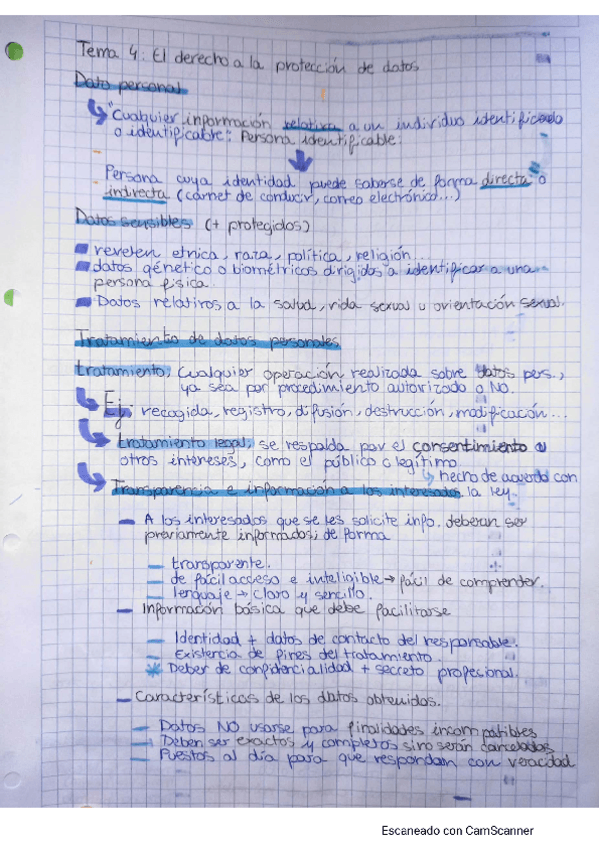 Tema 4: El derecho a la protección de datos
Dato personal
"Cualquier información relativa a un individuo identificado
o identificable": Persona identificable.
Persona cuya identidad puede saberse de forma directa o
indirecta (carnet de conducir, correo electrónico...)
Datos sensibles (+ protegidos)
revelen etnica, raza, política, religión...
datos génetico o biométricos dirigidos a identificar a una
persona física.
Datos relativos a la salud, vida sexual u orientación sexual.
Tratamiento de datos personales
tratamiento; Cualquier operación realizada sobre datos pers.,
ya sea por procedimiento autorizado o NO.
Ej: recogida, registro, difusión, destrucción, modificación...
tratamiento legal; se respalda por el consentimiento u
otros intereses, como el público o legítimo.
hecho de acuerdo con
Transparencia e información a los interesados la ley.
- A los interesados que se les solicite info. deberan ser
previamente informados; de forma
- transparente.
- de fácil acceso e inteligible → fácil de comprender.
- lenguaje → claro y sencillo.
- Información básica que debe facilitarse
- Identidad + datos de contacto del responsable.
- Existencia de fines del tratamiento.
* Deber de confidencialidad + secreto profesional.
- Características de los datos obtenidos.
- Datos NO usarse para finalidades incompatibles
- Deben ser exactos y completos sino serán cancelados
- Puestos al día para que respondan con veracidad
Escaneado con CamScanner